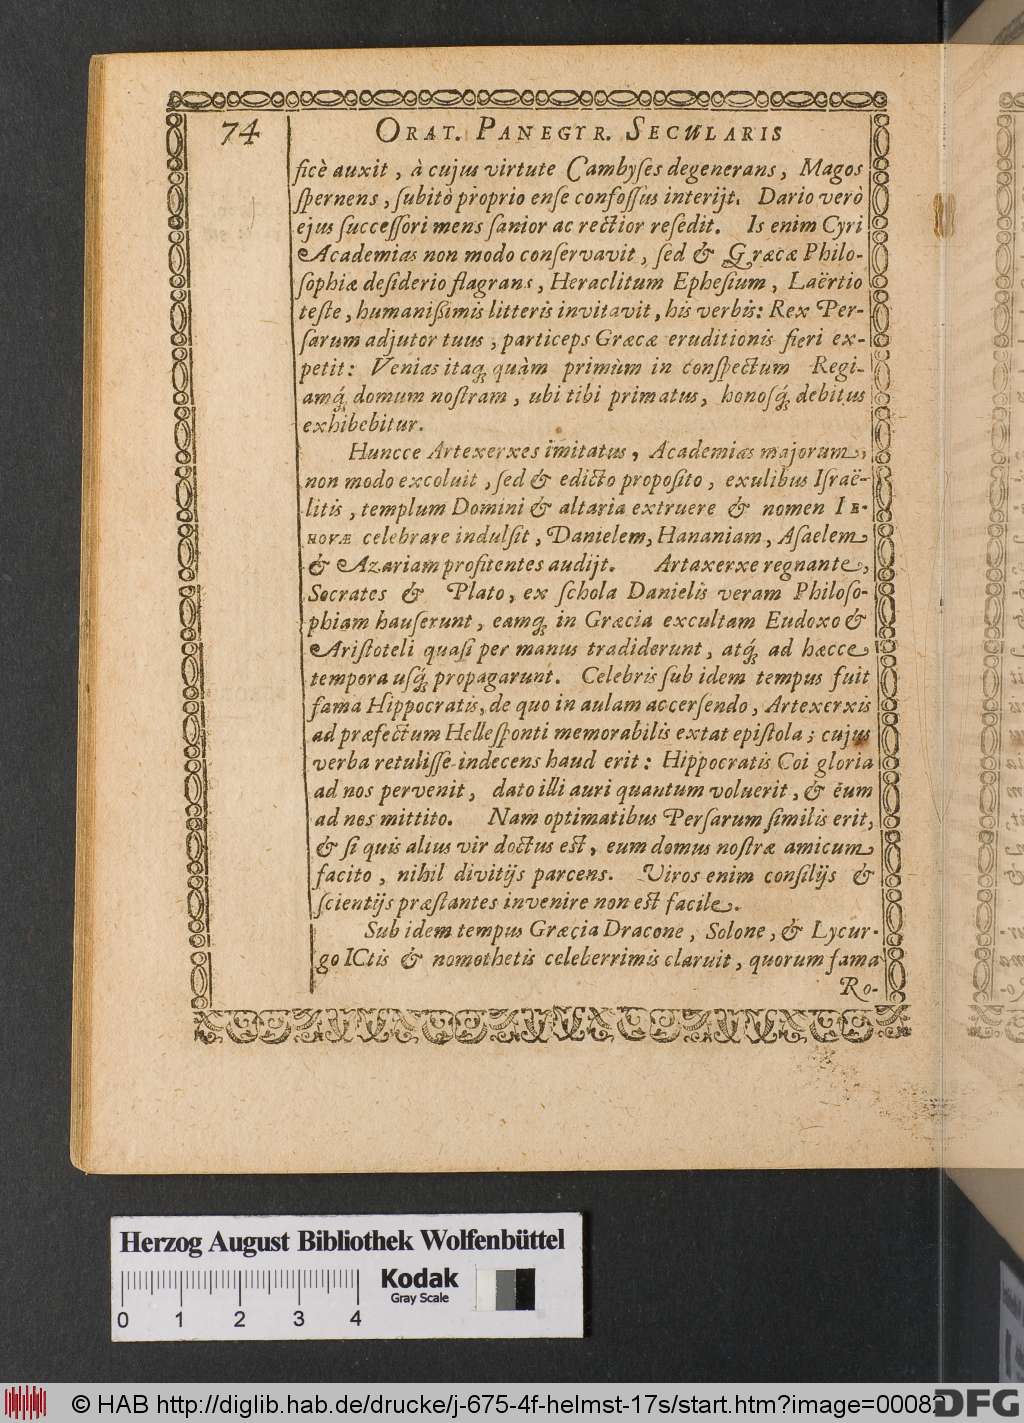 74 ORAT. PANEGYR. SECULARIS
ficè auxit, à cujus virtute Cambyſes degenerans, Magos
ſpernens, ſubitò proprio enſe confoſſus interijt. Dario verò
ejus ſucceſſori mens ſanior ac rectior reſedit. Is enim Cyri
Academias non modo conſervavit, ſed & Græcæ Philo-
ſophiæ deſiderio flagrans, Heraclitum Epheſium, Laërtio
teſte, humanißimis litteris invitavit, his verbis: Rex Per-
ſarum adjutor tuus, particeps Græcæ eruditionis fieri ex-
petit: Venias itaq́; quàm primùm in conſpectum Regi-
amq́; domum noſtram, ubi tibi primatus, honoſq́; debitus
exhibebitur.
Huncce Artexerxes imitatus, Academias majorum,
non modo excoluit, ſed & edicto propoſito, exulibus Iſraë-
litis, templum Domini & altaria extruere & nomen IE-
HOVÆ celebrare indulſit, Danielem, Hananiam, Aſaelem
& Azariam profitentes audijt. Artaxerxe regnante,
Socrates & Plato, ex ſchola Danielis veram Philoſo-
phiam hauſerunt, eamq́; in Græcia excultam Eudoxo &
Ariſtoteli quaſi per manus tradiderunt, atq́; ad hæcce
tempora uſq́; propagarunt. Celebris ſub idem tempus fuit
fama Hippocratis, de quo in aulam accerſendo, Artexerxis
ad præfectum Helleſponti memorabilis extat epiſtola; cujus
verba retuliſſe indecens haud erit: Hippocratis Coi gloria
ad nos pervenit, dato illi auri quantum voluerit, & eum
ad nos mittito. Nam optimatibus Perſarum ſimilis erit,
& ſi quis alius vir doctus eſt, eum domus noſtræ amicum
facito, nihil divitijs parcens. Viros enim conſilijs &
ſcientijs præſtantes invenire non eſt facile.
Sub idem tempus Græcia Dracone, Solone, & Lycur-
go ICtis & nomothetis celeberrimis claruit, quorum fama
Ro-
Herzog August Bibliothek Wolfenbüttel
Kodak
Gray Scale
0 1 2 3 4
© HAB http://diglib.hab.de/drucke/j-675-4f-helmst-17s/start.htm?image=00082
DFG